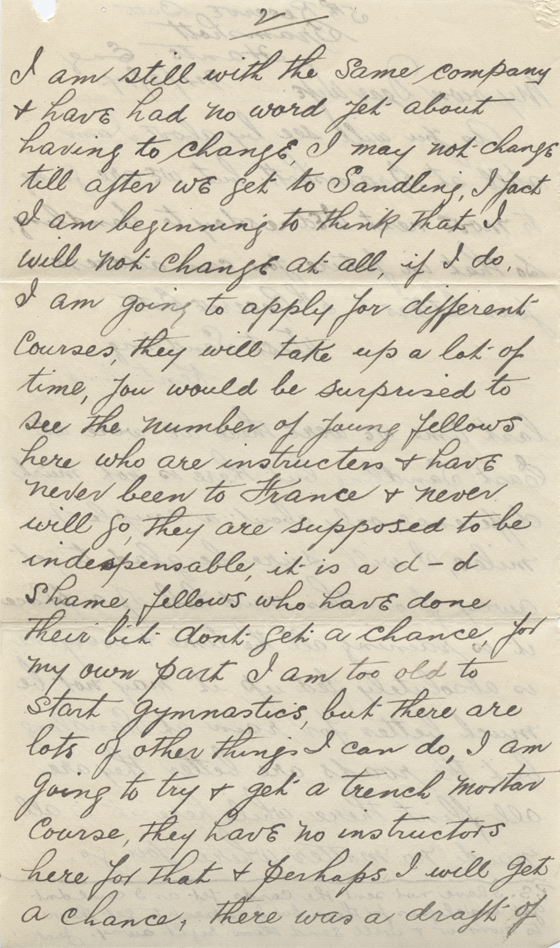 2
I am still with the same company
& have had no word yet about
having to change, I may not change
till after we get to Sandling, I fact
I am beginning to think that I
will not change at all, if I do,
I am going to apply for different
courses, they will take up a lot of
time, you would be surprised to
see the number of young fellows
here who are instructers & have
never been to France & never
will go, they are supposed to be
indespensable, it is a d-d
shame, fellows who have done
their bit dont get a chance, for
my own part I am too old to
start gymnastics, but there are
lots of other things I can do, I am
going to try & get a trench mortar
course, they have no instructors
here for that & perhaps I will get
a chance, there was a draft of